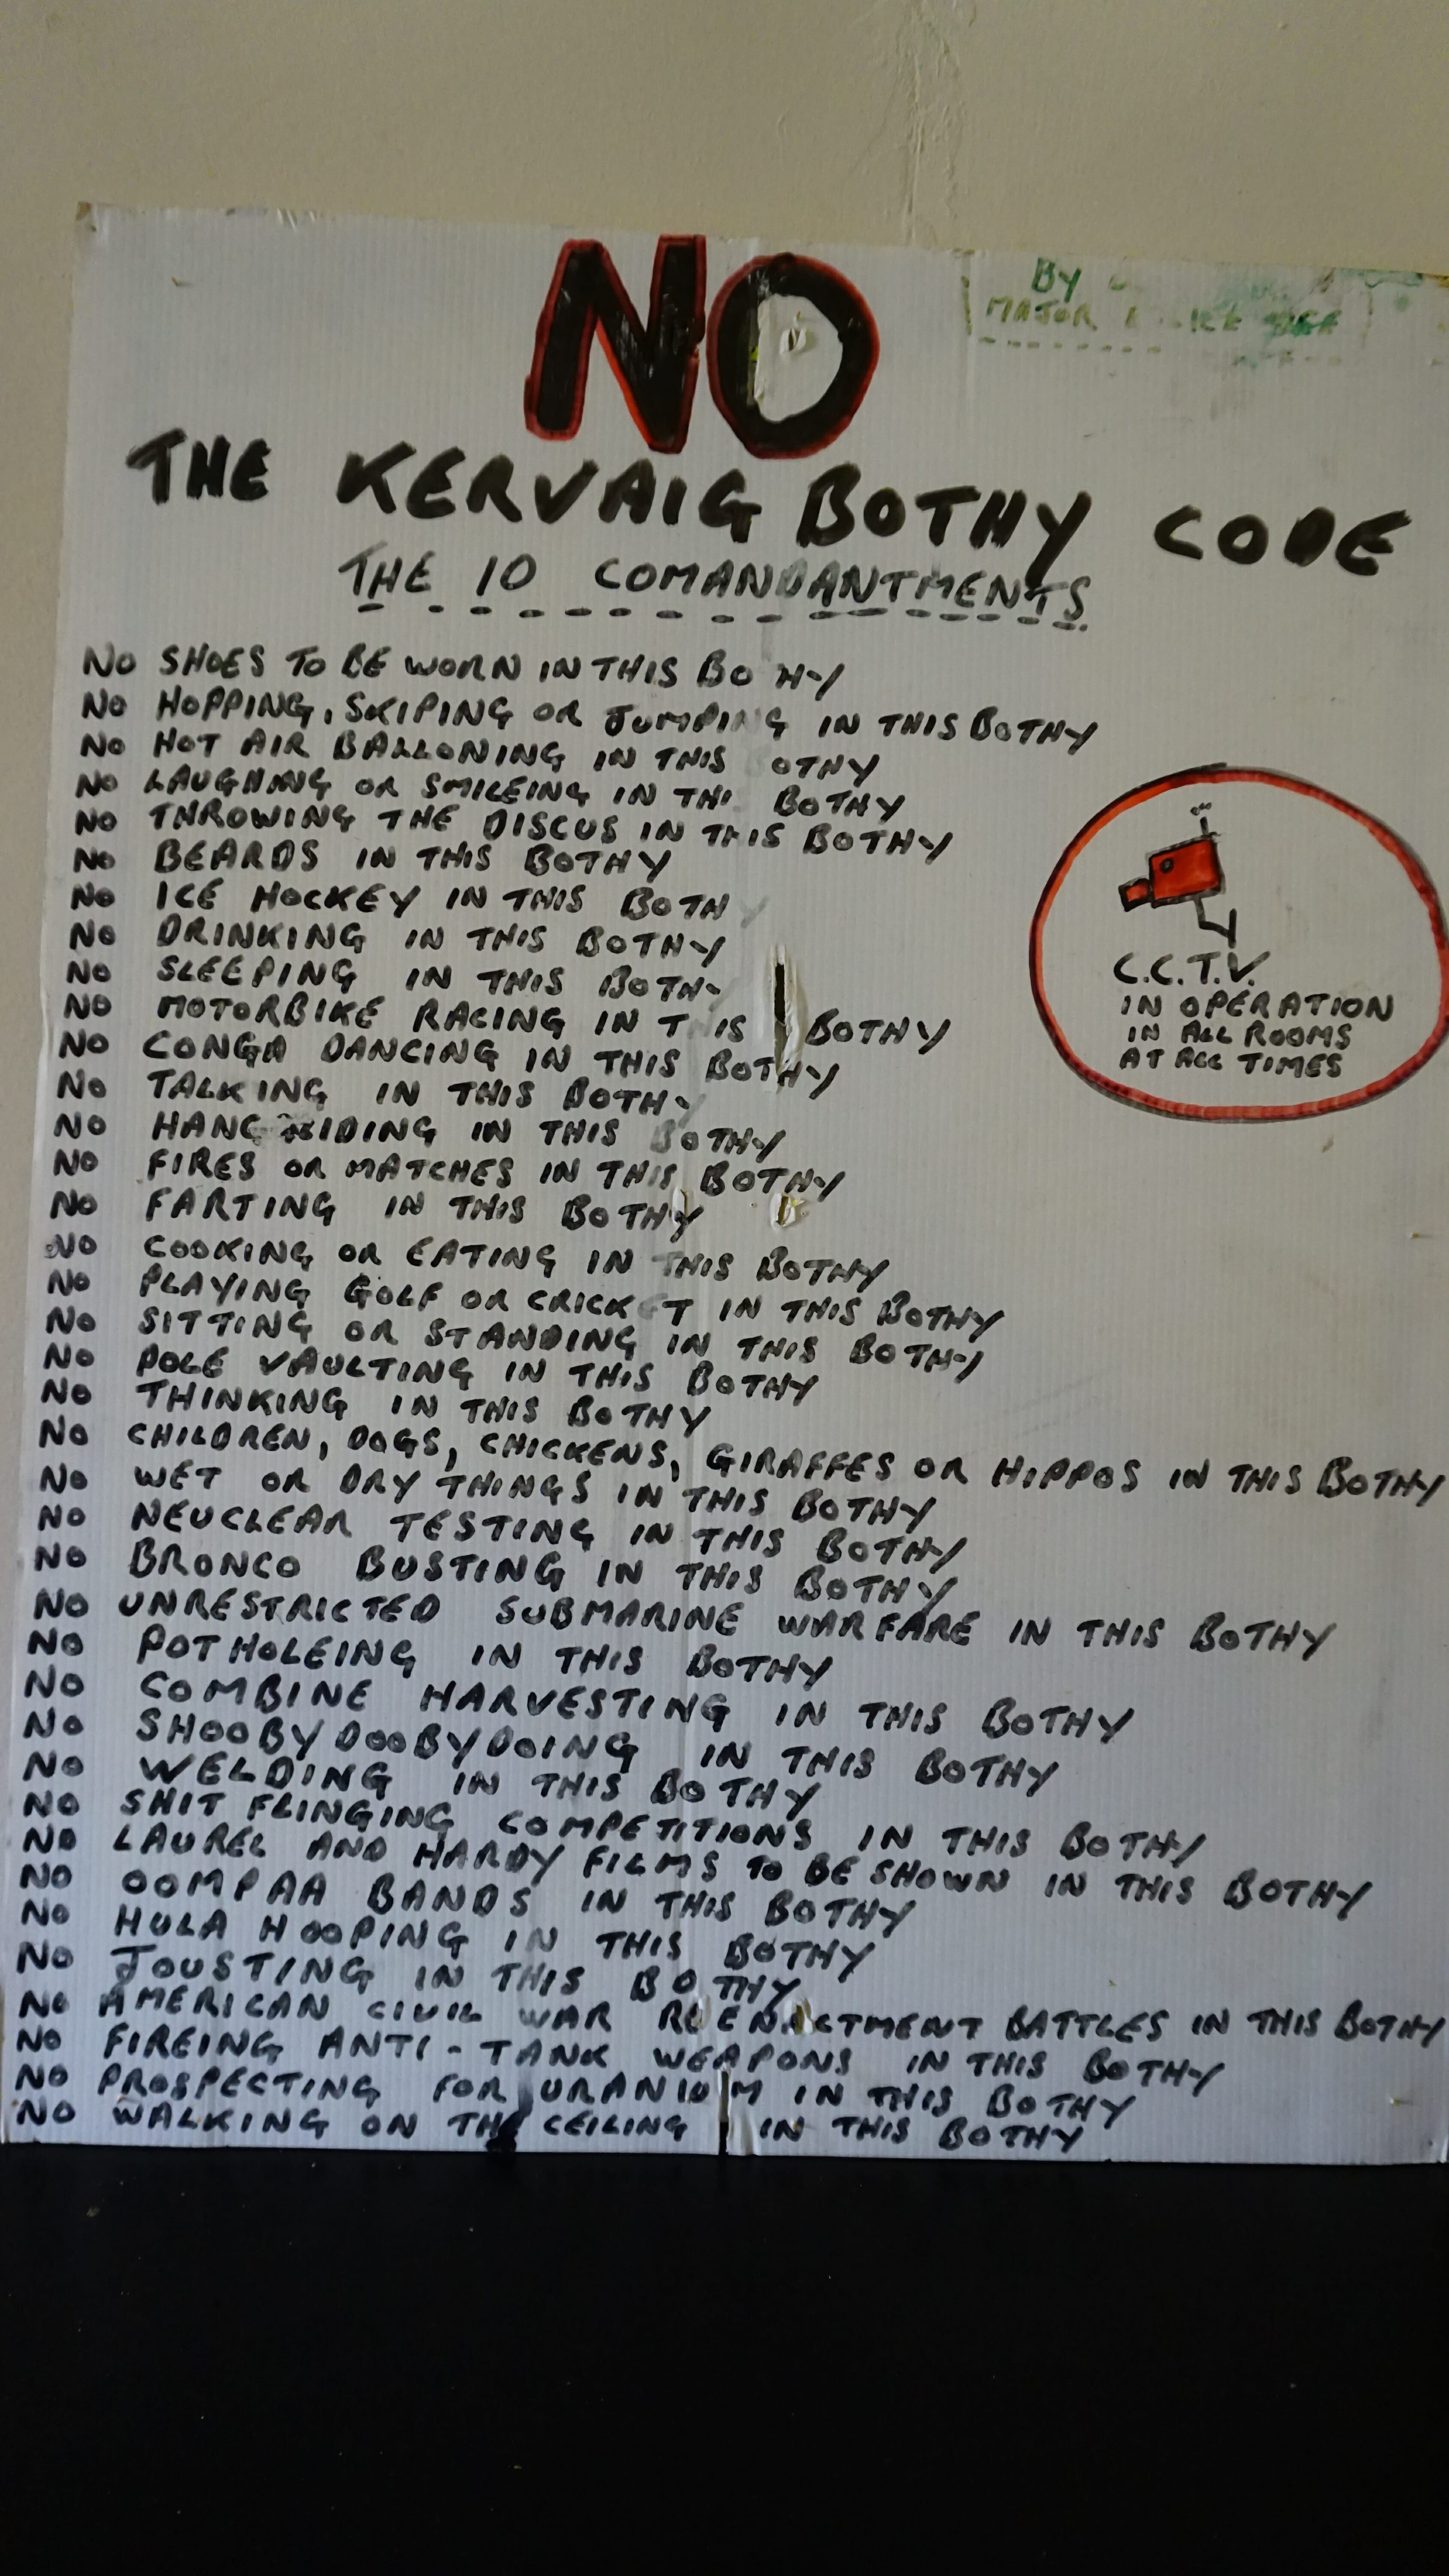 NO
BY
MAJOR
THE KERVAIG BOTHY CODE
THE 10 COMANDANTMENTS
NO SHOES TO BE WORN IN THIS BO HY
NO HOPPING, SKIPING OR JUMPING IN THIS BOTHY
NO HOT AIR BALLONING IN THIS OTHY
NO LAUGHING OR SMILEING IN THI BOTHY
NO THROWING THE DISCUS IN THIS BOTHY
NO BEARDS IN THIS BOTHY
NO ICE HOCKEY IN THIS BOTHY
NO DRINKING IN THIS BOTHY
NO SLEEPING IN THIS BOTHY
NO MOTORBIKE RACING IN T IS BOTHY
NO CONGA DANCING IN THIS BOTHY
NO TALKING IN THIS BOTHY
NO HANG RIDING IN THIS BOTHY
NO FIRES OR MATCHES IN THIS BOTHY
NO FARTING IN THIS BOTHY
NO COOKING OR EATING IN THIS BOTHY
NO PLAYING GOLF OR CRICKET IN THIS BOTHY
NO SITTING OR STANDING IN THIS BOTHY
NO POLE VAULTING IN THIS BOTHY
NO THINKING IN THIS BOTHY
NO CHILDREN, DOGS, CHICKENS, GIRAFFES OR HIPPOS IN THIS BOTHY
NO WET OR DRY THINGS IN THIS BOTHY
NO NEUCLEAR TESTING IN THIS BOTHY
NO BRONCO BUSTING IN THIS BOTHY
NO UNRESTRICTED SUBMARINE WARFARE IN THIS BOTHY
NO POTHOLEING IN THIS BOTHY
NO COMBINE HARVESTING IN THIS BOTHY
NO SHOOBYDOOBYDOING IN THIS BOTHY
NO WELDING IN THIS BOTHY
NO SHIT FLINGING COMPETITIONS IN THIS BOTHY
NO LAUREL AND HARDY FILMS TO BE SHOWN IN THIS BOTHY
NO OOMPAA BANDS IN THIS BOTHY
NO HULA HOOPING IN THIS BOTHY
NO JOUSTING IN THIS BOTHY
NO AMERICAN CIVIL WAR REENACTMENT BATTLES IN THIS BOTHY
NO FIREING ANTI-TANK WEAPONS IN THIS BOTHY
NO PROSPECTING FOR URANIUM IN THIS BOTHY
NO WALKING ON THE CEILING IN THIS BOTHY
C.C.T.V.
IN OPERATION
IN ALL ROOMS
AT ALL TIMES